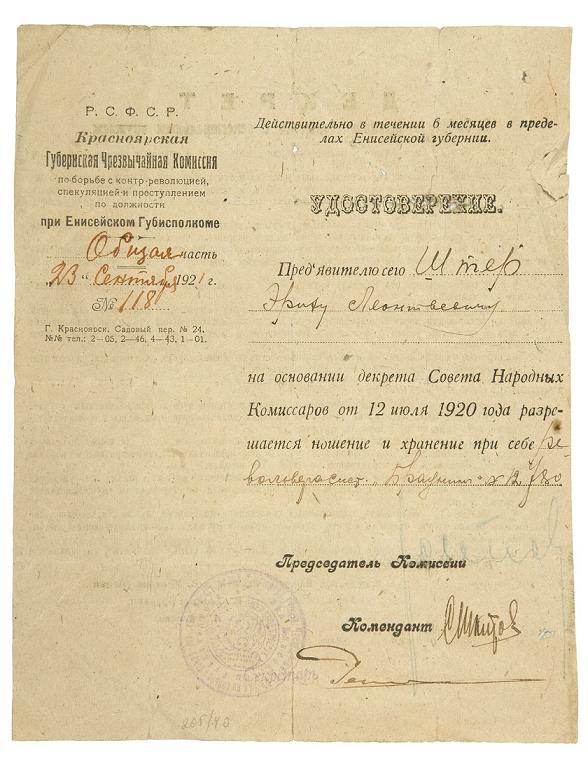 Р. С. Ф. С. Р.
Красноярская
Губернская Чрезвычайная Комиссия
по борьбе с контр-революцией,
спекуляцией и преступлением
по должности
при Енисейском Губисполкоме
Общая часть
„23" Сентября 1921 г.
№ 118
Г. Красноярск. Садовый пер. № 24.
№№ тел.: 2—05, 2—46, 4—43, 1—01.
Действительно в течении 6 месяцев в преде-
лах Енисейской губернии.
УДОСТОВЕРЕНИЕ.
Пред'явителю сего Штер
Эриху Леонтьевичу
на основании декрета Совета Народных
Комиссаров от 12 июля 1920 года разре-
шается ношение и хранение при себе ре-
вольвера сист. „Браунинг"
Председатель Комиссии
Комендант
Секретарь
205/40
ДЕКРЕТ